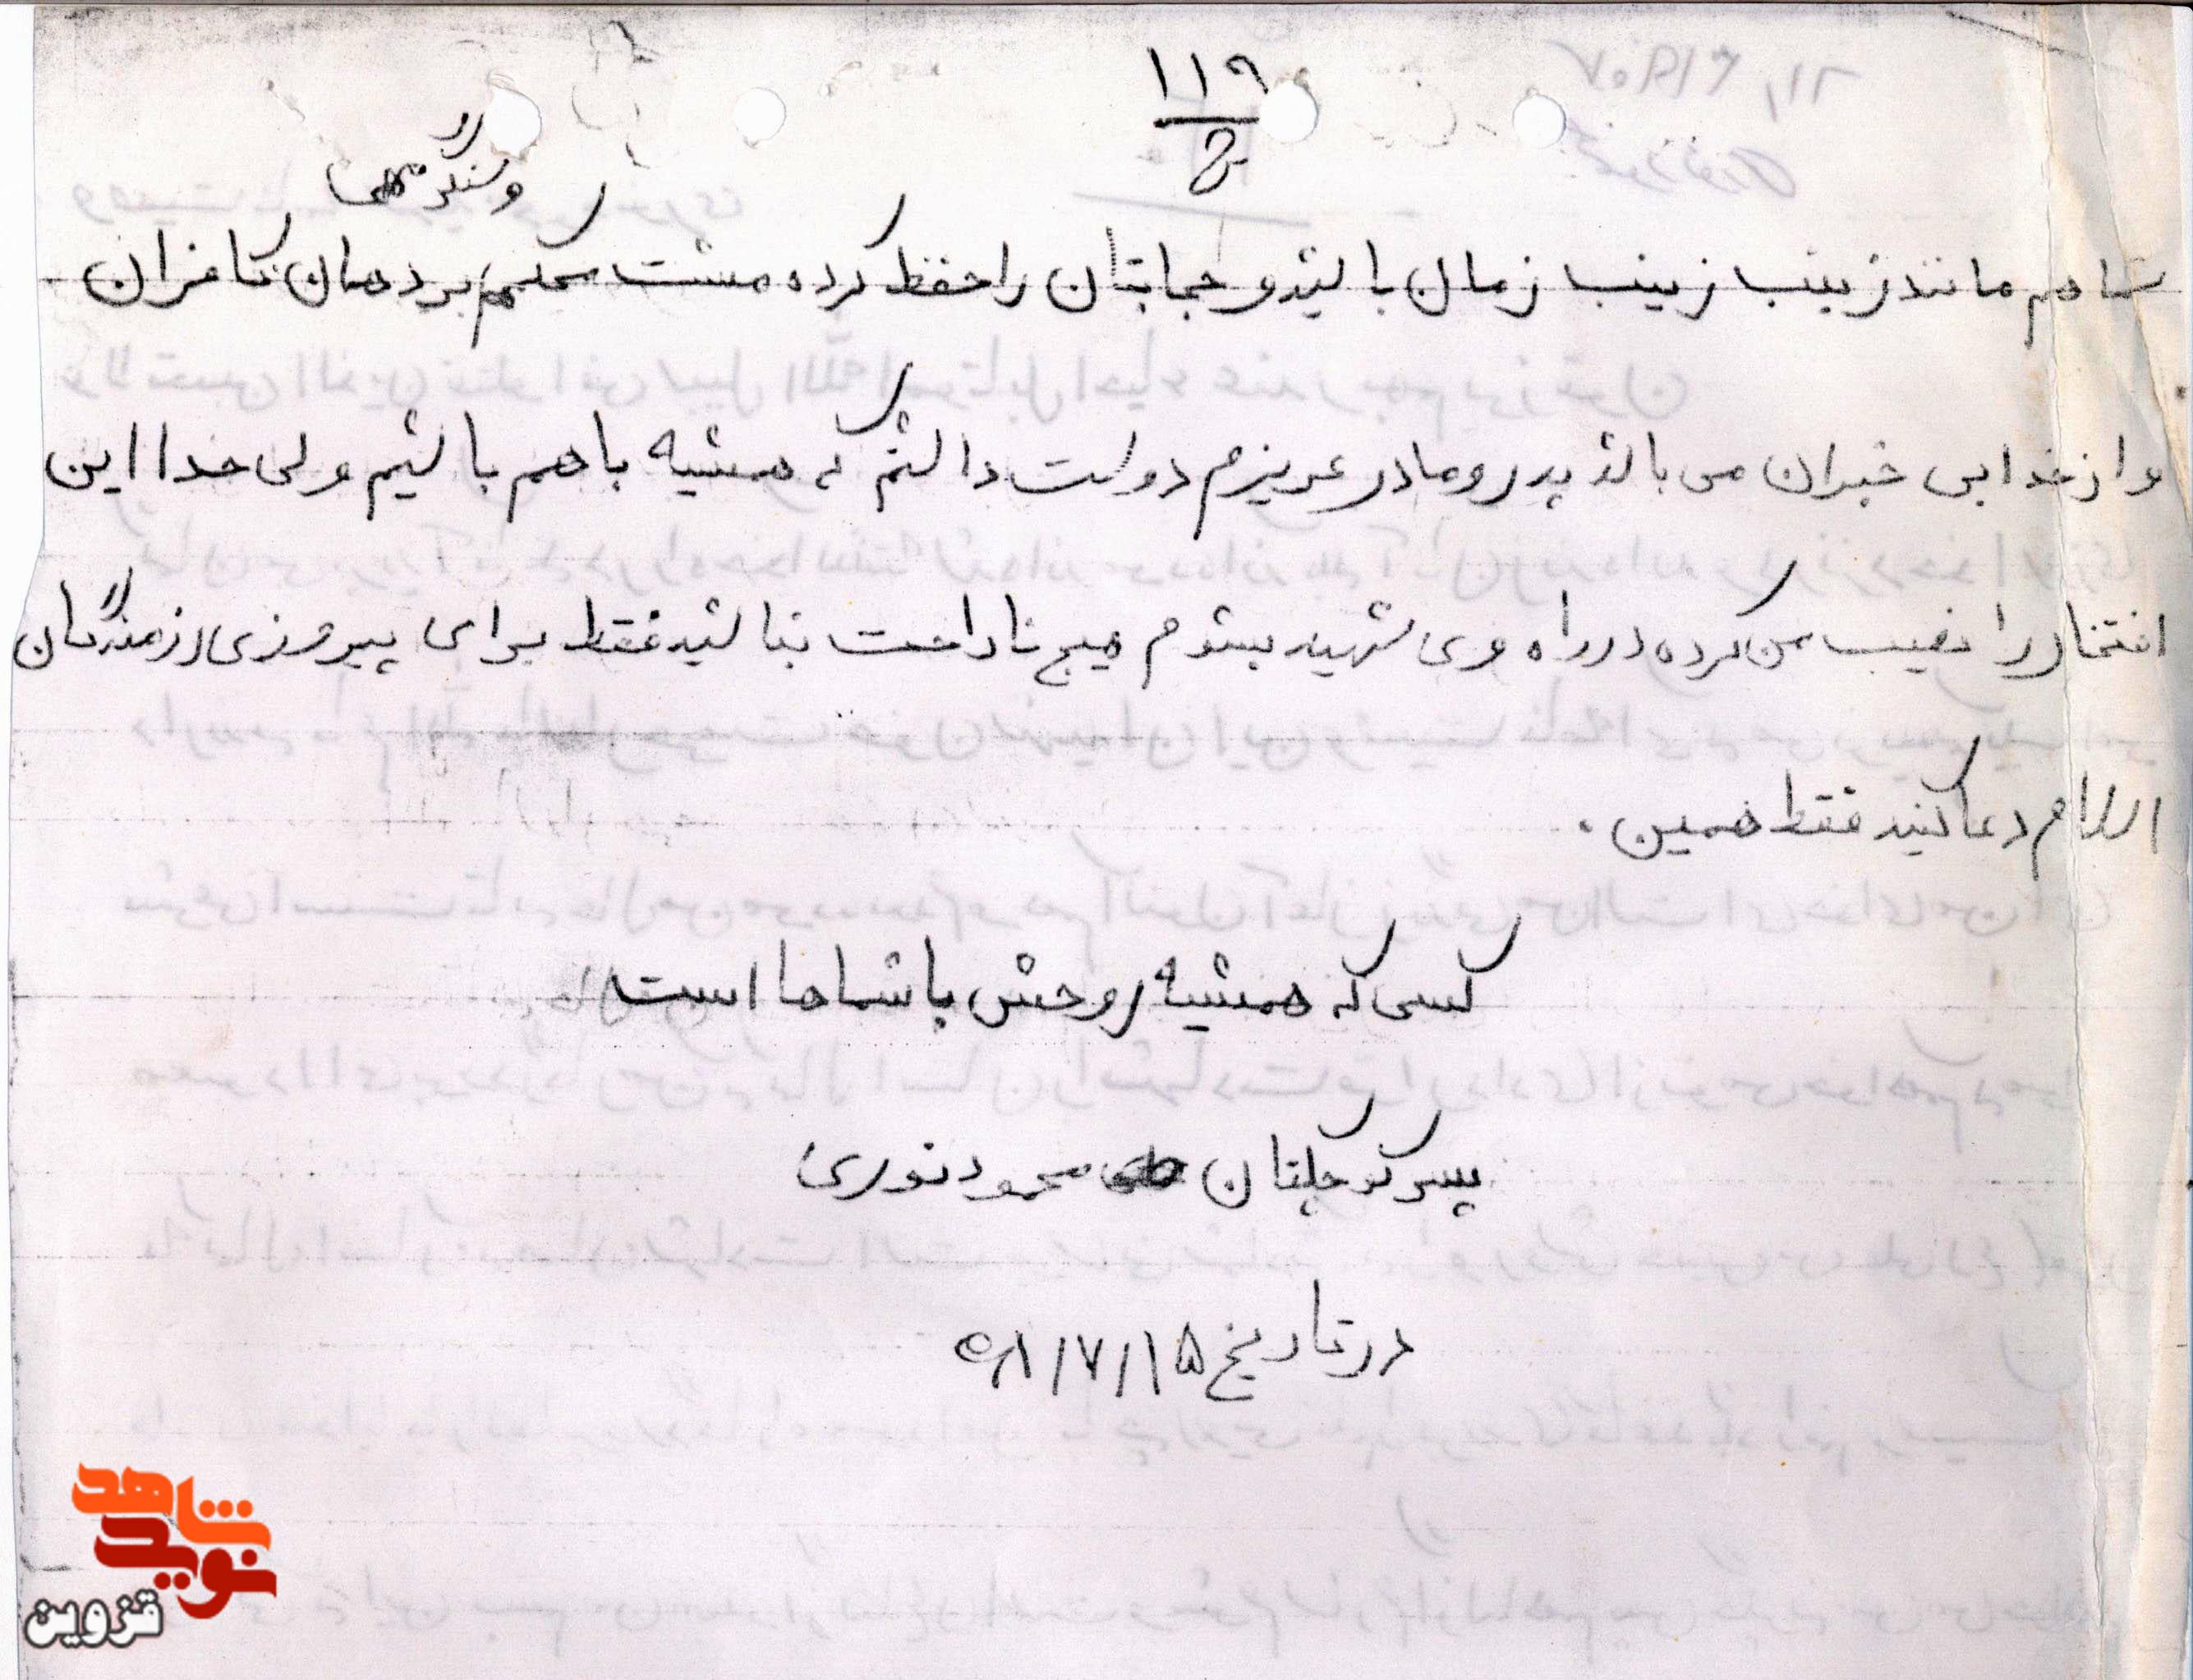 ۱۱۹
ح
و سنگر
شما هم مانند زینب زینب زمان باشید و حجابتان را حفظ کرده مشت محکم بر دهان کافران
و از خدا بی خبران می باشد پدر و مادر عزیزم دوست داشتم که همیشه با هم باشیم ولی خدا این
افتخار را نصیب من کرده در راه وی شهید بشوم هیچ ناراحت نباشید فقط برای پیروزی رزمندگان
اسلام دعا کنید فقط همین .
کسی که همیشه روحش با شماها است
پسر کوچکتان محمود نوری
در تاریخ ۱۵/۷/
شاهد
نوید
قزوین